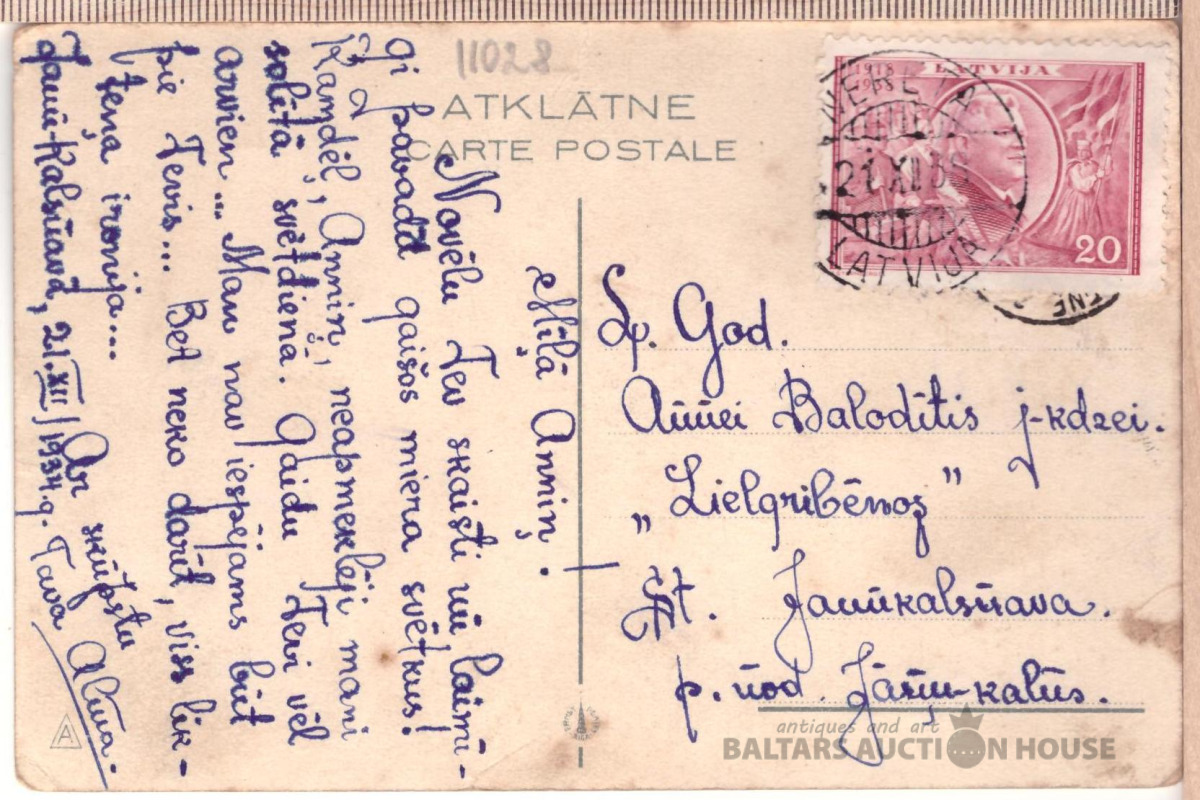 11028
ATKLĀTNE
CARTE POSTALE
LATVIJA
1918
20
21 XII
LATVIJA
Mīļā Anniņ!
Novēlu Tev skaisti un laimī-
gi pavadīt gaišos miera svētkus!
Kamdēļ, Anniņ, neapmeklēji mani
solītā svētdienā. Gaidu Tevi vēl
arvien... Man nav iespējams būt
pie Tevis... Bet neko darīt, viss lik-
teņa ironija...
Ar skūpstu
Jaun-Kalsnavā, 21.XII/1934.g. Tava Alma.
Lp. God.
Annei Balodītis j-kdzei.
„Lielgribēnos"
Št. Jaunkalsnava.
p. nod. Jāņu-kalns.
A
antiques and art
BALTARS AUCTION HOUSE